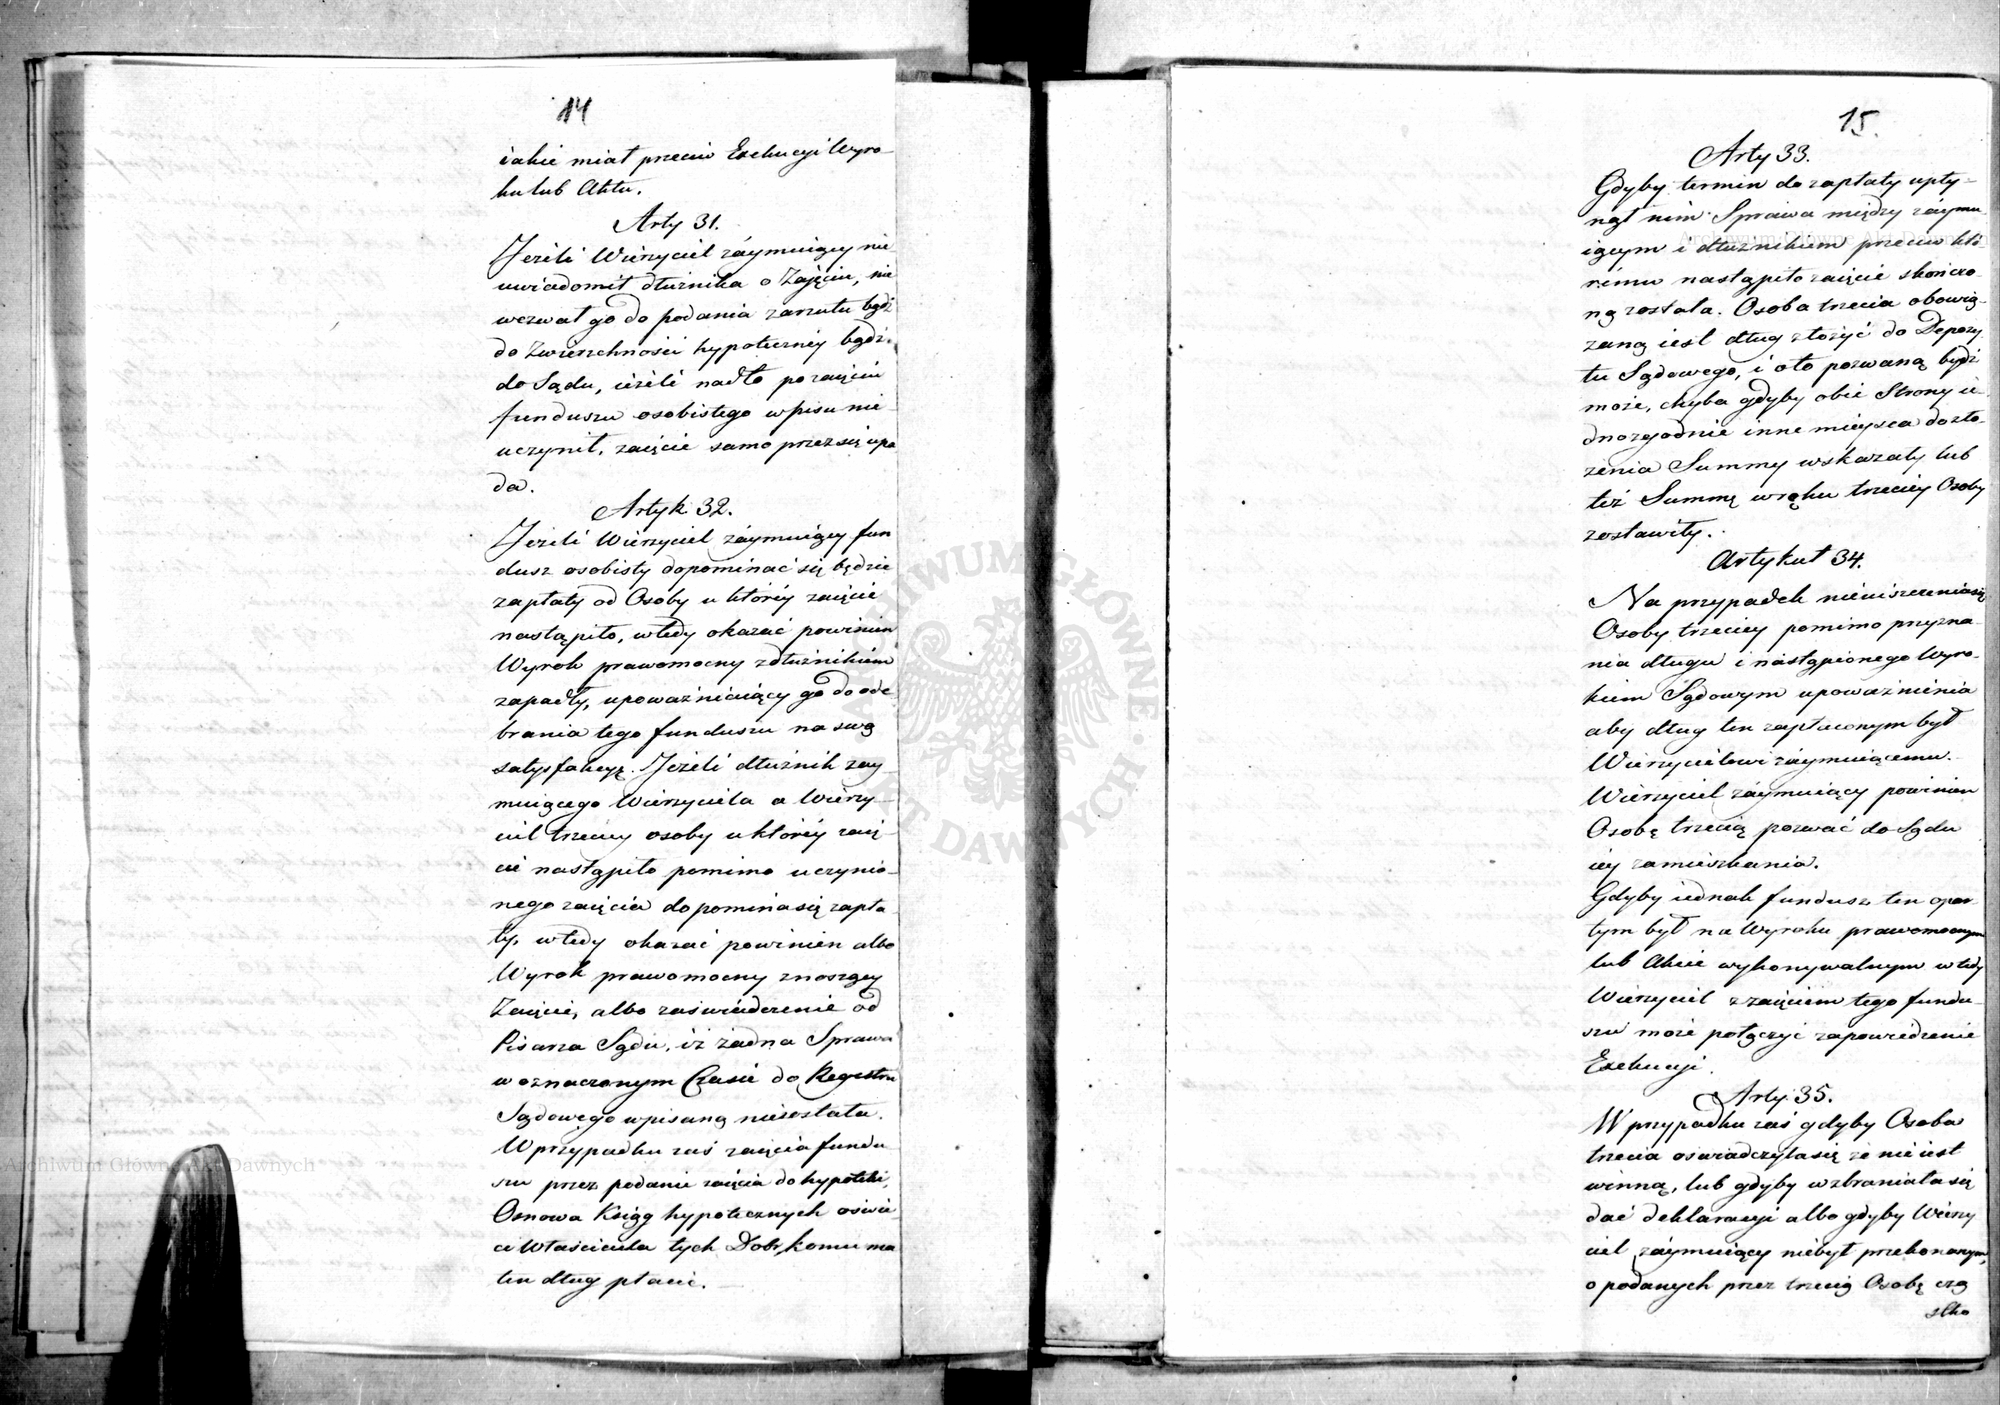 14
iakie miał przeciw Exekucyi Wyro-
ku lub Aktu.
Arty 31.
Jeżeli Wierzyciel záymuiący nie
uwiadomił dłużnika o Zajęciu, nie
wezwał go do podania zarzutu bądź
do Zwierzchności hypoteczney bądź
do Sądu, ieżeli nadto po zaięciu
funduszu osobistego wpisu nie
uczynił, zaięcie samo przez się upa
da.
Artyk 32.
Jeżeli Wierzyciel záymuiący fun
dusz osobisty dopominać się będzie
zapłaty od Osoby u któréy zaięcie
nastąpiło, wtedy okazać powinien
Wyrok prawomocny z dłużnikiem
zapadły, upoważniaiący go do ode
brania tego funduszu na swą
satysfakcyę. Jeżeli dłużnik zay
muiącego Wierzyciela a Wierzy-
ciel trzeciey osoby u któréy zaię-
cie nastąpiło pomimo uczynio-
nego zaięcia dopomina się zapła
ty, wtedy okazać powinien albo
Wyrok prawomocny znoszący
Zaięcie, albo zaświadczenie od
Pisarza Sądu, iż żadna Sprawa
w oznaczonym Czasie do Regestru
Sądowego wpisaną niezostała.
W przypadku zaś zaięcia fundu
szu przez podanie zaięcia do hypoteki,
Osnowa Ksiąg hypotecznych oświe
ci Właściciela tych Dóbr, komu ma
ten dług płacić.
15.
Arty 33.
Gdyby termin do zapłaty upły-
nął nim Sprawa między záymu
iącym i dłużnikiem przeciw któ
rému nastąpiło zaięcie skończo-
ną została. Osoba trzecia obowią-
zaną iest dług złożyć do Depozy
tu Sądowego, i o to pozwaną bydź
może, chyba gdyby obie Strony ie
dnozgodnie inne mieysca do zło-
żenia Summy wskazały lub
też Summę w ręku trzeciey Osoby
zostawiły.
Artykuł 34.
Na przypadek nieuiszczenia się
Osoby trzeciey pomimo przyzna-
nia długu i nastąpionego Wyro-
kiem Sądowym upoważnienia
aby dług ten zapłaconym był
Wierzycielowi záymuiącemu.
Wierzyciel záymuiący powinien
Osobę trzecią pozwać do Sądu
iéy zamieszkania.
Gdyby iednak fundusz ten opar-
tym był na Wyroku prawomocnym
lub Akcie wykonywalnym wtedy
Wierzyciel z zaięciem tego fundu-
szu może połączyć zapowiedzenie
Exekucyi.
Arty. 35.
W przypadku zaś gdyby Osoba
trzecia oświadczyła się że nie iest
winną, lub gdyby wzbraniała się
dać deklaracyi albo gdyby Wierzy
ciel záymuiący niebył przekonanym,
o podanych przez trzecią Osobę czą
stko
Archiwum Główne Akt Dawnych
Archiwum Główne Akt Dawnych
ARCHIWUM GŁÓWNE AKT DAWNYCH